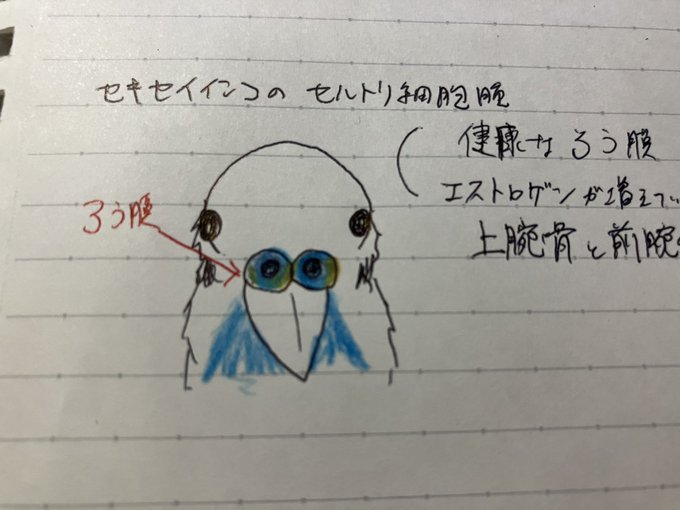 セキセイインコの セルトリ細胞腫
健康な ろう膜
エストロゲンが増えて
上腕骨と前腕
ろう膜